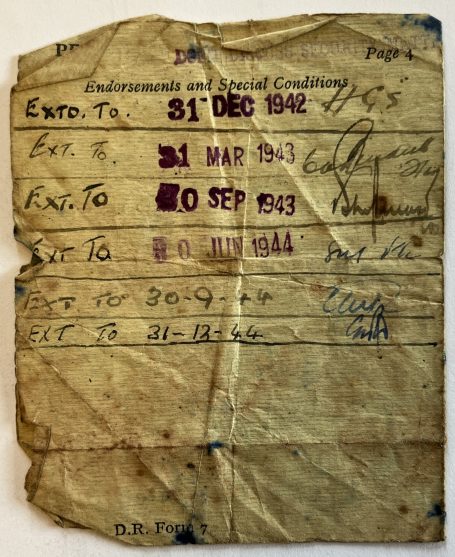 Page 4
Endorsements and Special Conditions
EXTD. TO. 31 DEC 1942 HGS
EXT. TO. 31 MAR 1943
EXT. TO 30 SEP 1943
EXT TO 30 JUN 1944
EXT TO 30-9-44
EXT TO 31-12-44
D.R. Form 7